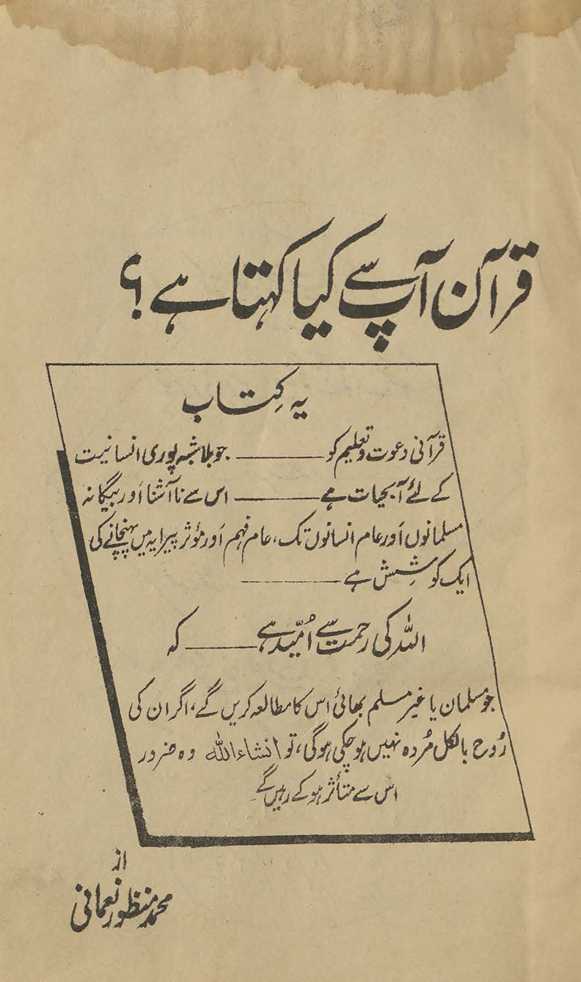 قرآن آپ سے کیا کہتا ہے؟
یہ کِتاب
قرآنی دعوت و تعلیم کو ـــــــــ جو بلاشبہ پوری انسانیت
کے لئے آبحیات ہے ـــــــــ اس سے ناآشنا اَور بیگانہ
مسلمانوں اَور عام انسانوں تک، عام فہم اَور مؤثر پیرایہ میں پہنچانے کی
ایک کوشِش ہے ـــــــــ
اللہ کی رحمت سے اُمیّد ہے ـــــــــ کہ
جو مسلمان یا غیر مسلم بھائی اس کا مطالعہ کریں گے، اگر ان کی
رُوح بالکل مُردہ نہیں ہو چکی ہوگی، تو انشاءاللہ وہ ضرور
اس سے متأثر ہو کے رہیں گے۔
از
محمد منظور نعمانی